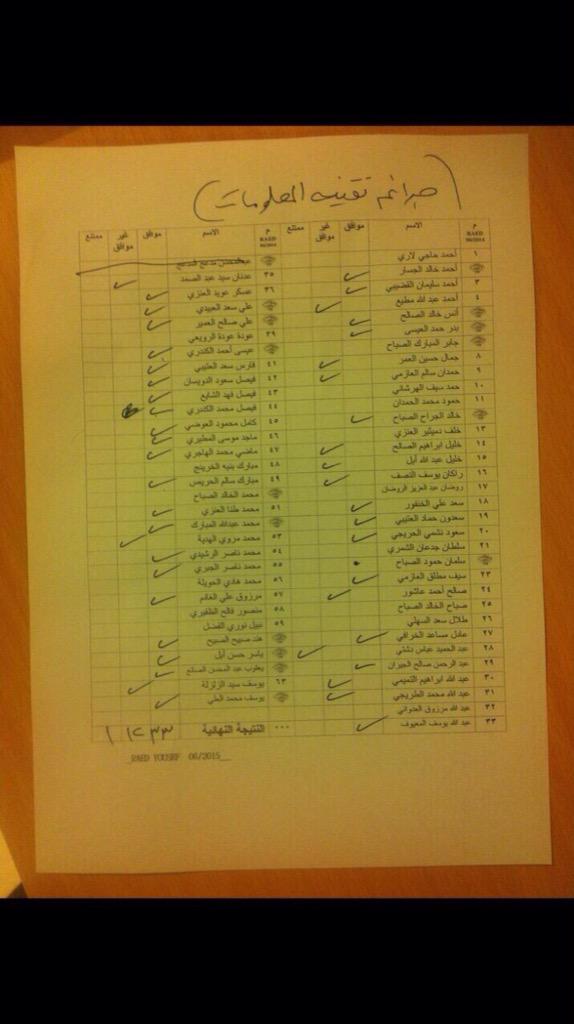 (جرائم تقنية المعلومات)
م RAED 06/2014 الاسم موافق غير موافق ممتنع
١ أحمد حاجي لاري
أحمد خالد الجسار
٣ أحمد سليمان القضيبي
٤ أحمد عبد الله مطيع
أنس خالد الصالح
بدر حمد العيسى
جابر المبارك الصباح
٨ جمال حسين العمر
٩ حمدان سالم العازمي
١٠ حمد سيف الهرشاني
١١ حمود محمد الحمدان
خالد الجراح الصباح
١٣ خلف دميثير العنزي
١٤ خليل ابراهيم الصالح
١٥ خليل عبد الله أبل
١٦ راكان يوسف النصف
١٧ روضان عبد العزيز الروضان
١٨ سعد علي الخنفور
١٩ سعدون حماد العتيبي
٢٠ سعود نشمي الحريجي
٢١ سلطان جدعان الشمري
سلمان حمود الصباح
٢٣ سيف مطلق العازمي
٢٤ صالح أحمد عاشور
٢٥ صباح الخالد الصباح
٢٦ طلال سعد السهلي
٢٧ عادل مساعد الخرافي
٢٨ عبد الحميد عباس دشتي
٢٩ عبد الرحمن صالح الجيران
٣٠ عبد الله ابراهيم التميمي
٣١ عبد الله محمد الطريجي
٣٢ عبد الله مرزوق العدواني
٣٣ عبد الله يوسف المعيوف
م RAED 06/2014 الاسم موافق غير موافق ممتنع
عبد المحسن مدعج المدعج
٣٥ عدنان سيد عبد الصمد
٣٦ عسكر عويد العنزي
علي سعد العبيدي
علي صالح العمير
٣٩ عودة عودة الرويعي
عيسى أحمد الكندري
٤١ فارس سعد العتيبي
٤٢ فيصل سعود الدويسان
٤٣ فيصل فهد الشايع
٤٤ فيصل محمد الكندري
٤٥ كامل محمود العوضي
٤٦ ماجد موسى المطيري
٤٧ ماضي محمد الهاجري
٤٨ مبارك بنيه الخرينج
٤٩ مبارك سالم الحريص
محمد الخالد الصباح
٥١ محمد طنا العنزي
محمد عبدالله المبارك
٥٣ محمد مروي الهدية
٥٤ محمد ناصر الرشيدي
٥٥ محمد ناصر الجبري
٥٦ محمد هادي الحويلة
٥٧ مرزوق علي الغانم
٥٨ منصور فالح الظفيري
٥٩ نبيل نوري الفضل
هند صبيح الصبيح
ياسر حسن أبل
يعقوب عبد المحسن الصانع
٦٣ يوسف سيد الزلزلة
يوسف محمد العلي
النتيجة النهائية ...
_RAED YOUSRF 06/2015_